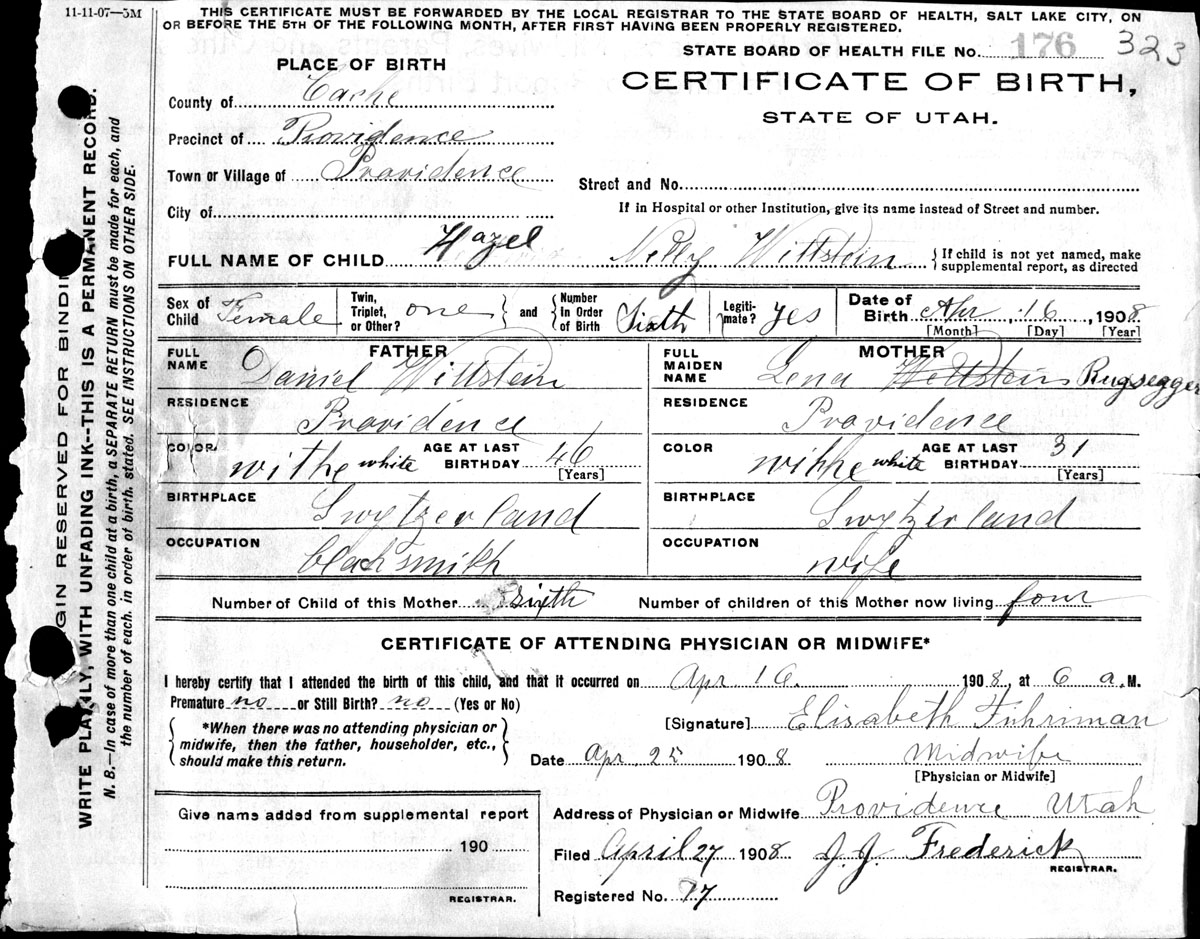 11-11-07—5M
THIS CERTIFICATE MUST BE FORWARDED BY THE LOCAL REGISTRAR TO THE STATE BOARD OF HEALTH, SALT LAKE CITY, ON
OR BEFORE THE 5TH OF THE FOLLOWING MONTH, AFTER FIRST HAVING BEEN PROPERLY REGISTERED.
STATE BOARD OF HEALTH FILE No. 176 323
PLACE OF BIRTH
CERTIFICATE OF BIRTH,
STATE OF UTAH.
County of Cache
Precinct of Providence
Town or Village of Providence
Street and No.
City of
If in Hospital or other Institution, give its name instead of Street and number.
FULL NAME OF CHILD Hazel Nelly Wittstein { If child is not yet named, make supplemental report, as directed
Sex of Child Female Twin, Triplet, or Other? one } and { Number In Order of Birth Sixth Legiti-mate? yes Date of Birth Apr 16, 1908
[Month] [Day] [Year]
FATHER
FULL NAME Daniel Wittstein
RESIDENCE Providence
COLOR withe white AGE AT LAST BIRTHDAY 46 [Years]
BIRTHPLACE Swytzerland
OCCUPATION blacksmith
MOTHER
FULL MAIDEN NAME Lena Wettstein Rugsegger
RESIDENCE Providence
COLOR withe white AGE AT LAST BIRTHDAY 31 [Years]
BIRTHPLACE Swytzerland
OCCUPATION wife
Number of Child of this Mother sixth Number of children of this Mother now living four
CERTIFICATE OF ATTENDING PHYSICIAN OR MIDWIFE*
I hereby certify that I attended the birth of this child, and that it occurred on Apr 16 1908, at 6 a.M.
Premature no or Still Birth? no (Yes or No)
{ *When there was no attending physician or midwife, then the father, householder, etc., should make this return. }
[Signature] Elisabeth Fuhriman
Date Apr 25 1908 Midwife
[Physician or Midwife]
Give name added from supplemental report
190
REGISTRAR.
Address of Physician or Midwife Providence Utah
Filed April 27 1908 J. J. Frederick
REGISTRAR.
Registered No. 77
GIN RESERVED FOR BINDIN
WRITE PLAINLY, WITH UNFADING INK--THIS IS A PERMANENT RECORD.
N. B.—In case of more than one child at a birth, a SEPARATE RETURN must be made for each, and
the number of each, in order of birth, stated. SEE INSTRUCTIONS ON OTHER SIDE.